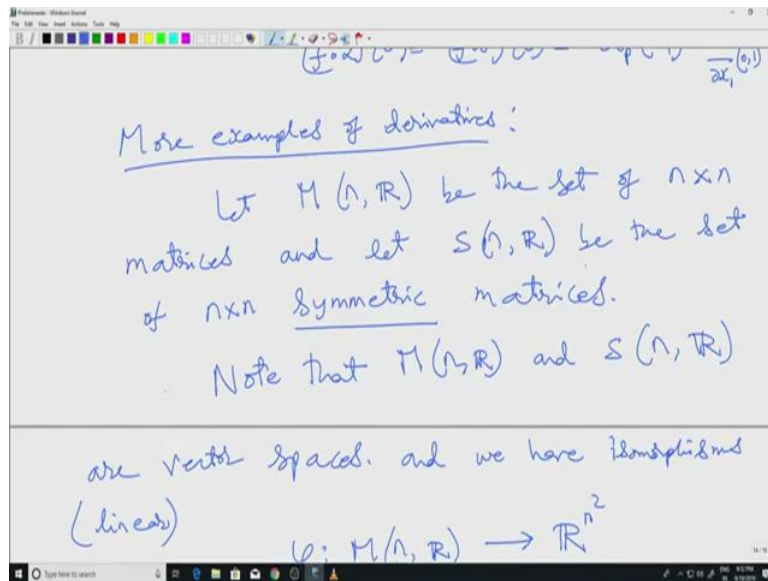 Preliminaries - Windows Journal
File Edit View Insert Actions Tools Help
More examples of derivatives :
Let M (n, ℝ) be the set of n×n
matrices and let S(n, ℝ) be the set
of n×n symmetric matrices.
Note that M(n,ℝ) and S(n, ℝ)
are vector spaces. and we have isomorphisms
(linear)
φ: M(n, ℝ) → ℝ^{n^2}
Type here to search